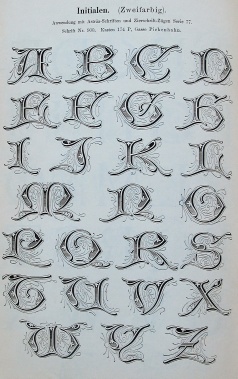 Initialen. (Zweifarbig).
Anwendung mit Accus-Schriften und Zierschrift-Zügen Serie 77.
Schrift No. 900. Kasten 174 P, Gasse Pickenhahn.
A B C D
E E G H
I J K L
M N O
P Q R S
T U V X
W Y Z